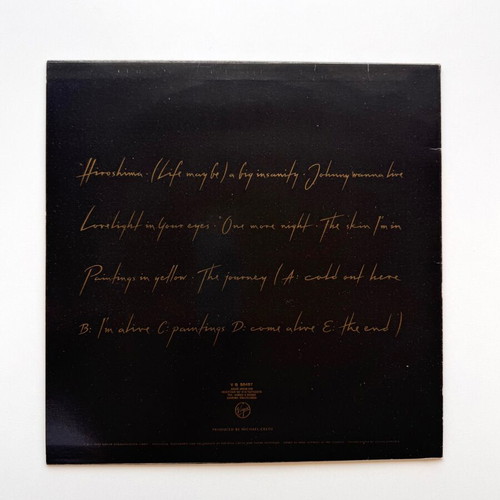 Hiroshima · (Life maybe) a big insanity · Johnny wanna live
Lovelight in your eyes · One more night · The skin I'm in
Paintings in yellow · The journey (A: cold out here
B: I'm alive C: paintings D: come alive E: the end)
Virgin
PRODUCED BY MICHAEL CRETU